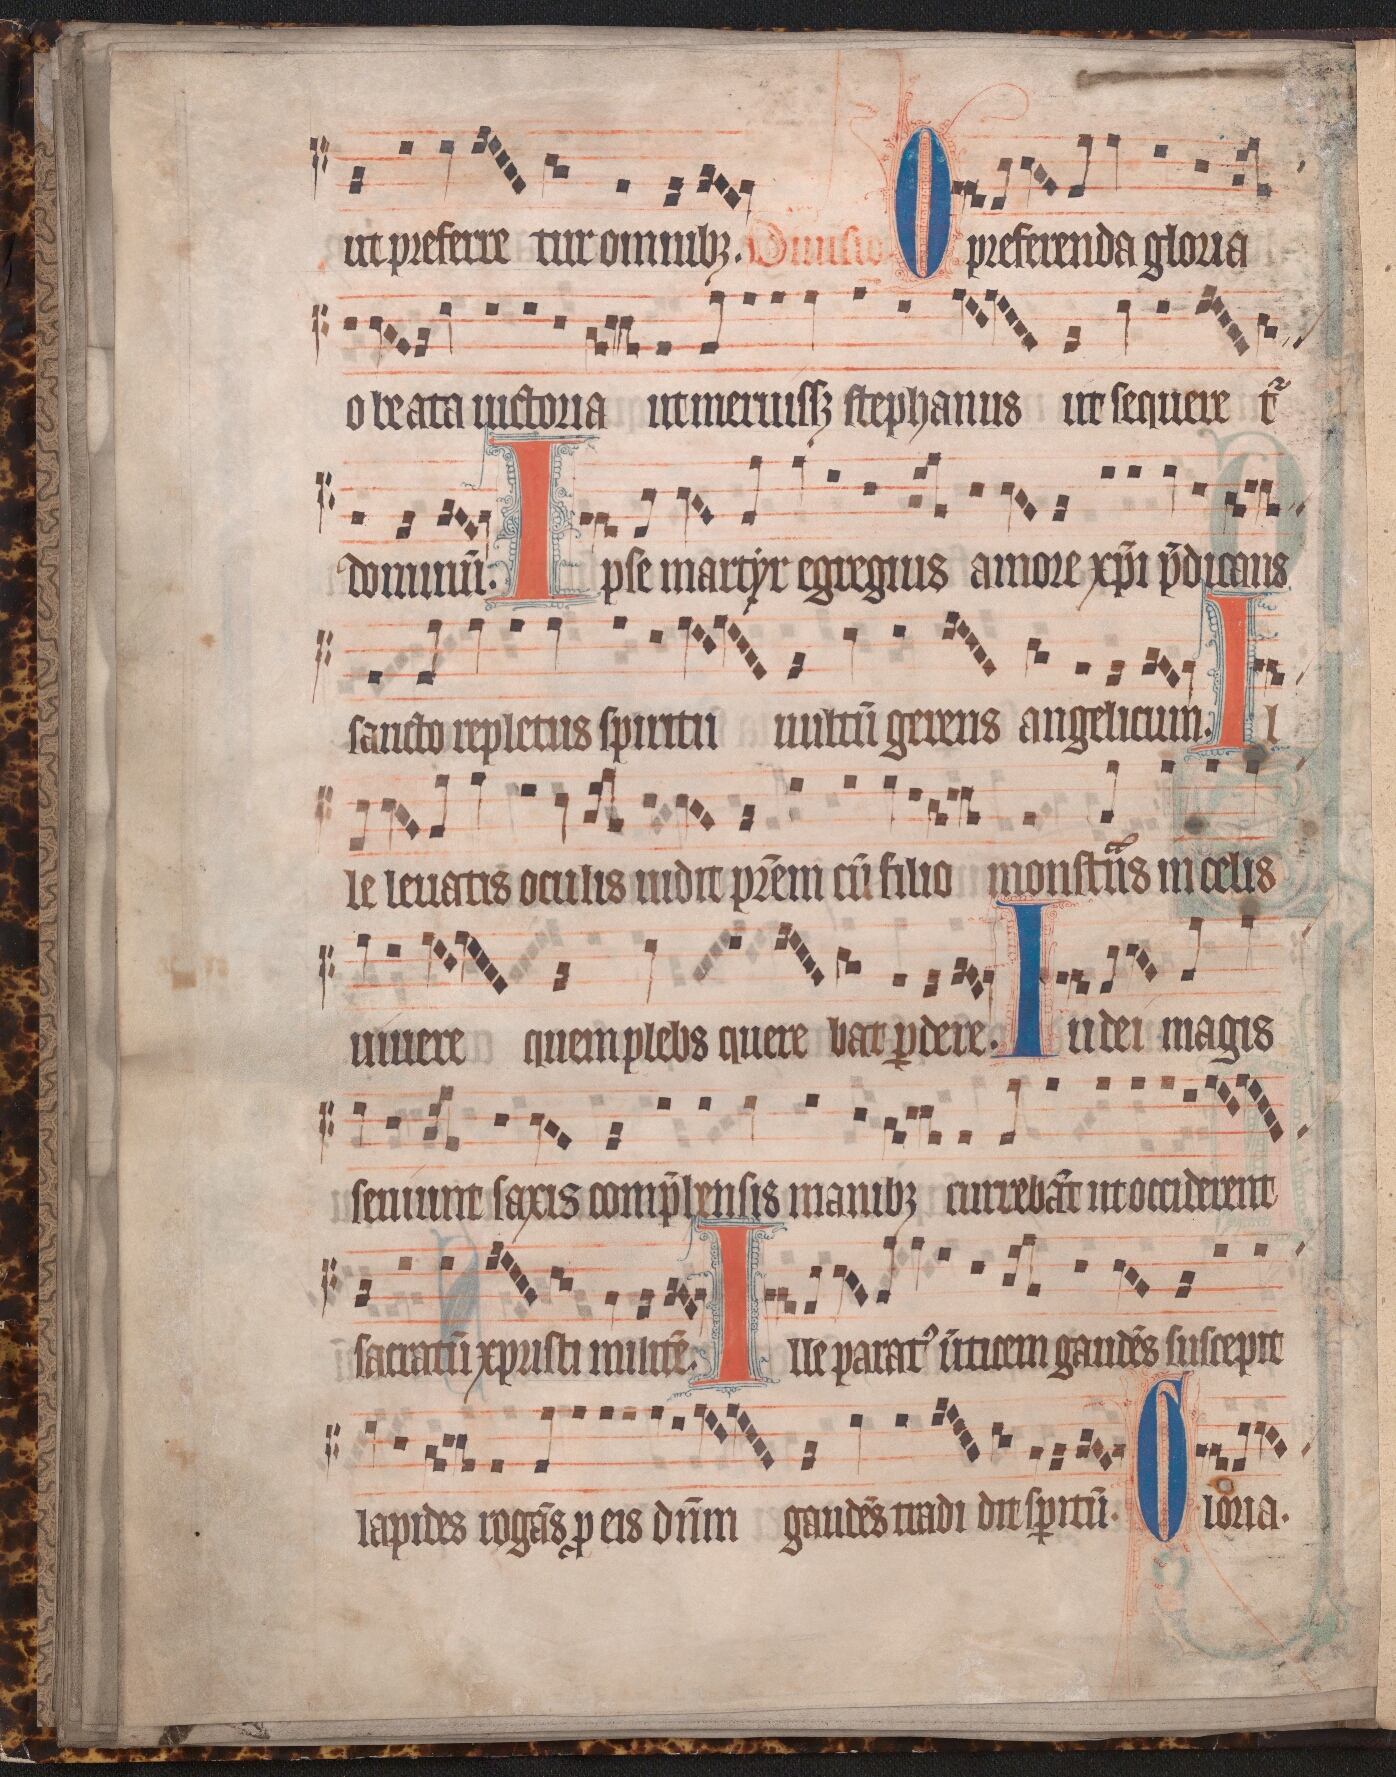 ut preferre tur omnibꝫ. Diuisio O preferenda gloria
o beata uictoria ut meruissꝫ stephanus ut sequere t᷑
dominū. Ipse martẏr egregius amore xp̄i p̄dicans
sancto repletus spiritu uultū gerens angelicum. Il
le leuatis oculis uidit pr̄em cū filio in celis
uiuere quem plebs quere bat ꝑdere. Iudei magis
seuiunt saxis comp̄hensis manibꝫ currebāt ut occiderent
sacratū xpristi militē. Ille paratꝰ gaudēs suscepit
lapides rogās ꝓ eis dn̄m gaudēs tradi dit sꝑitū. Gloria.